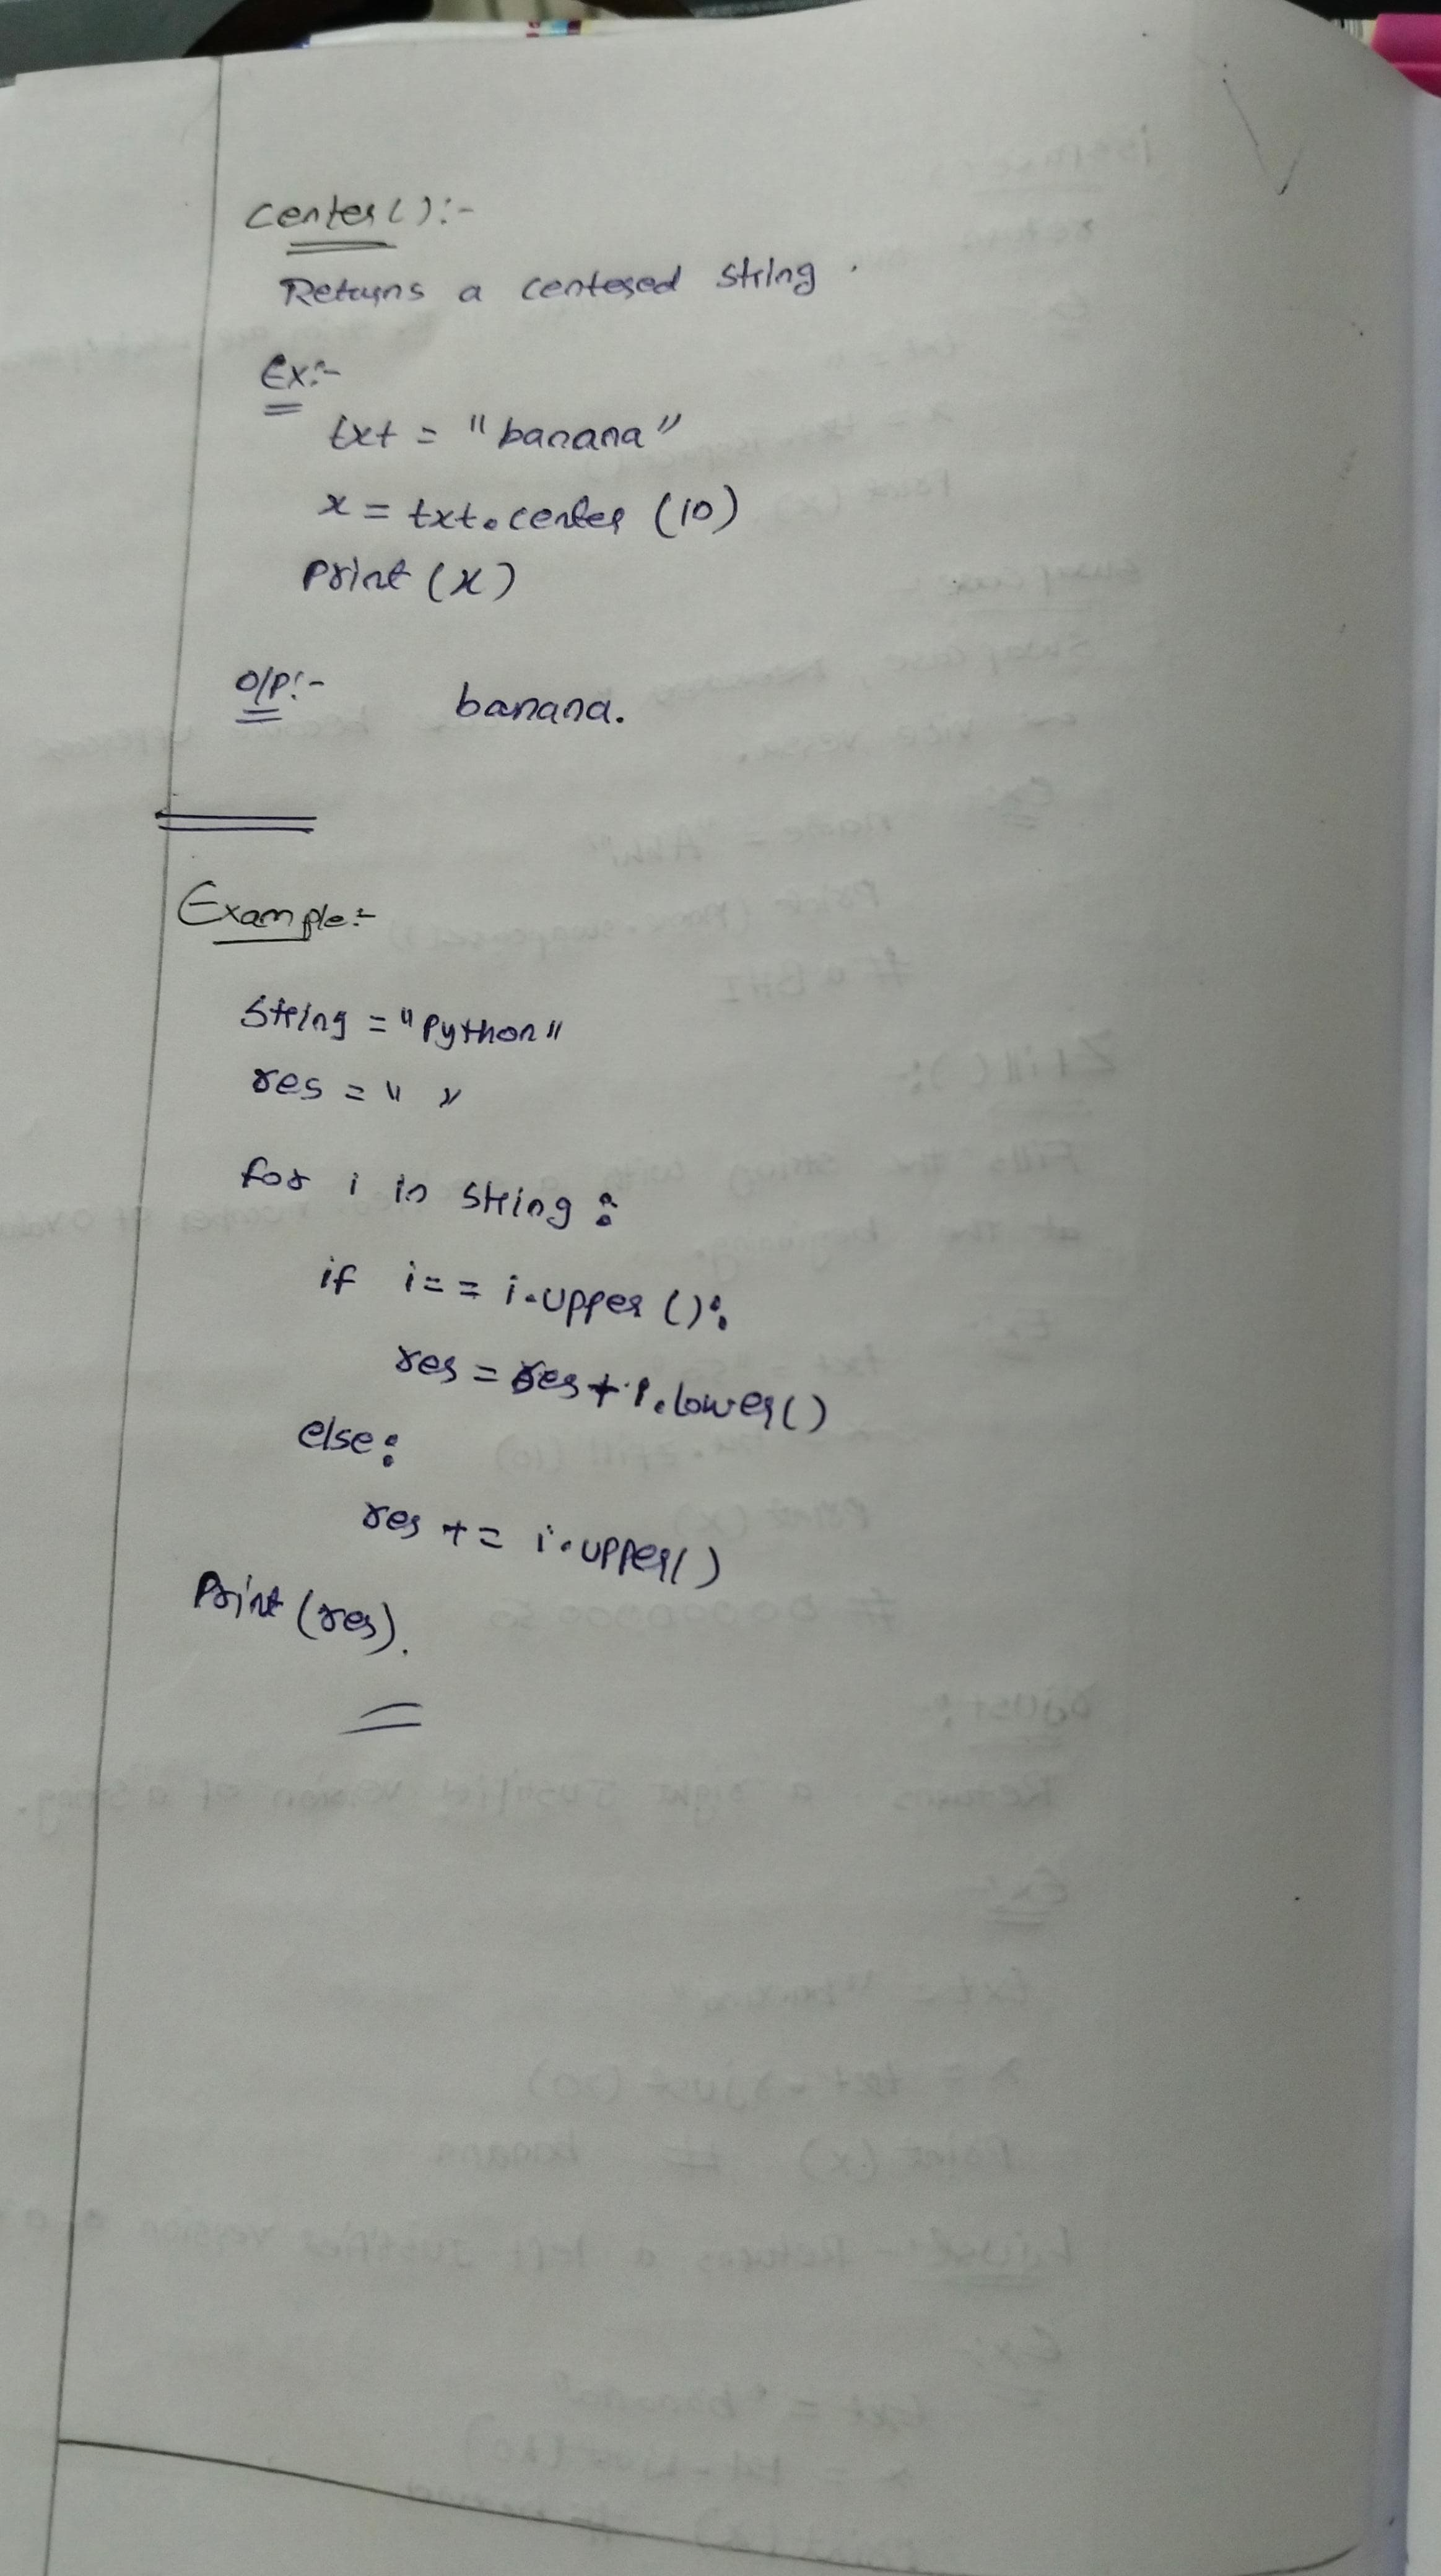 center():-
Returns a centered string.
Ex:-
txt = "banana"
x = txt.center (10)
Print (x)
O/P:- banana.
Example:-
String = "Python"
res = " "
for i in string :
if i == i.upper ():
res = res + i.lower()
else:
res += i.upper()
Print (res).